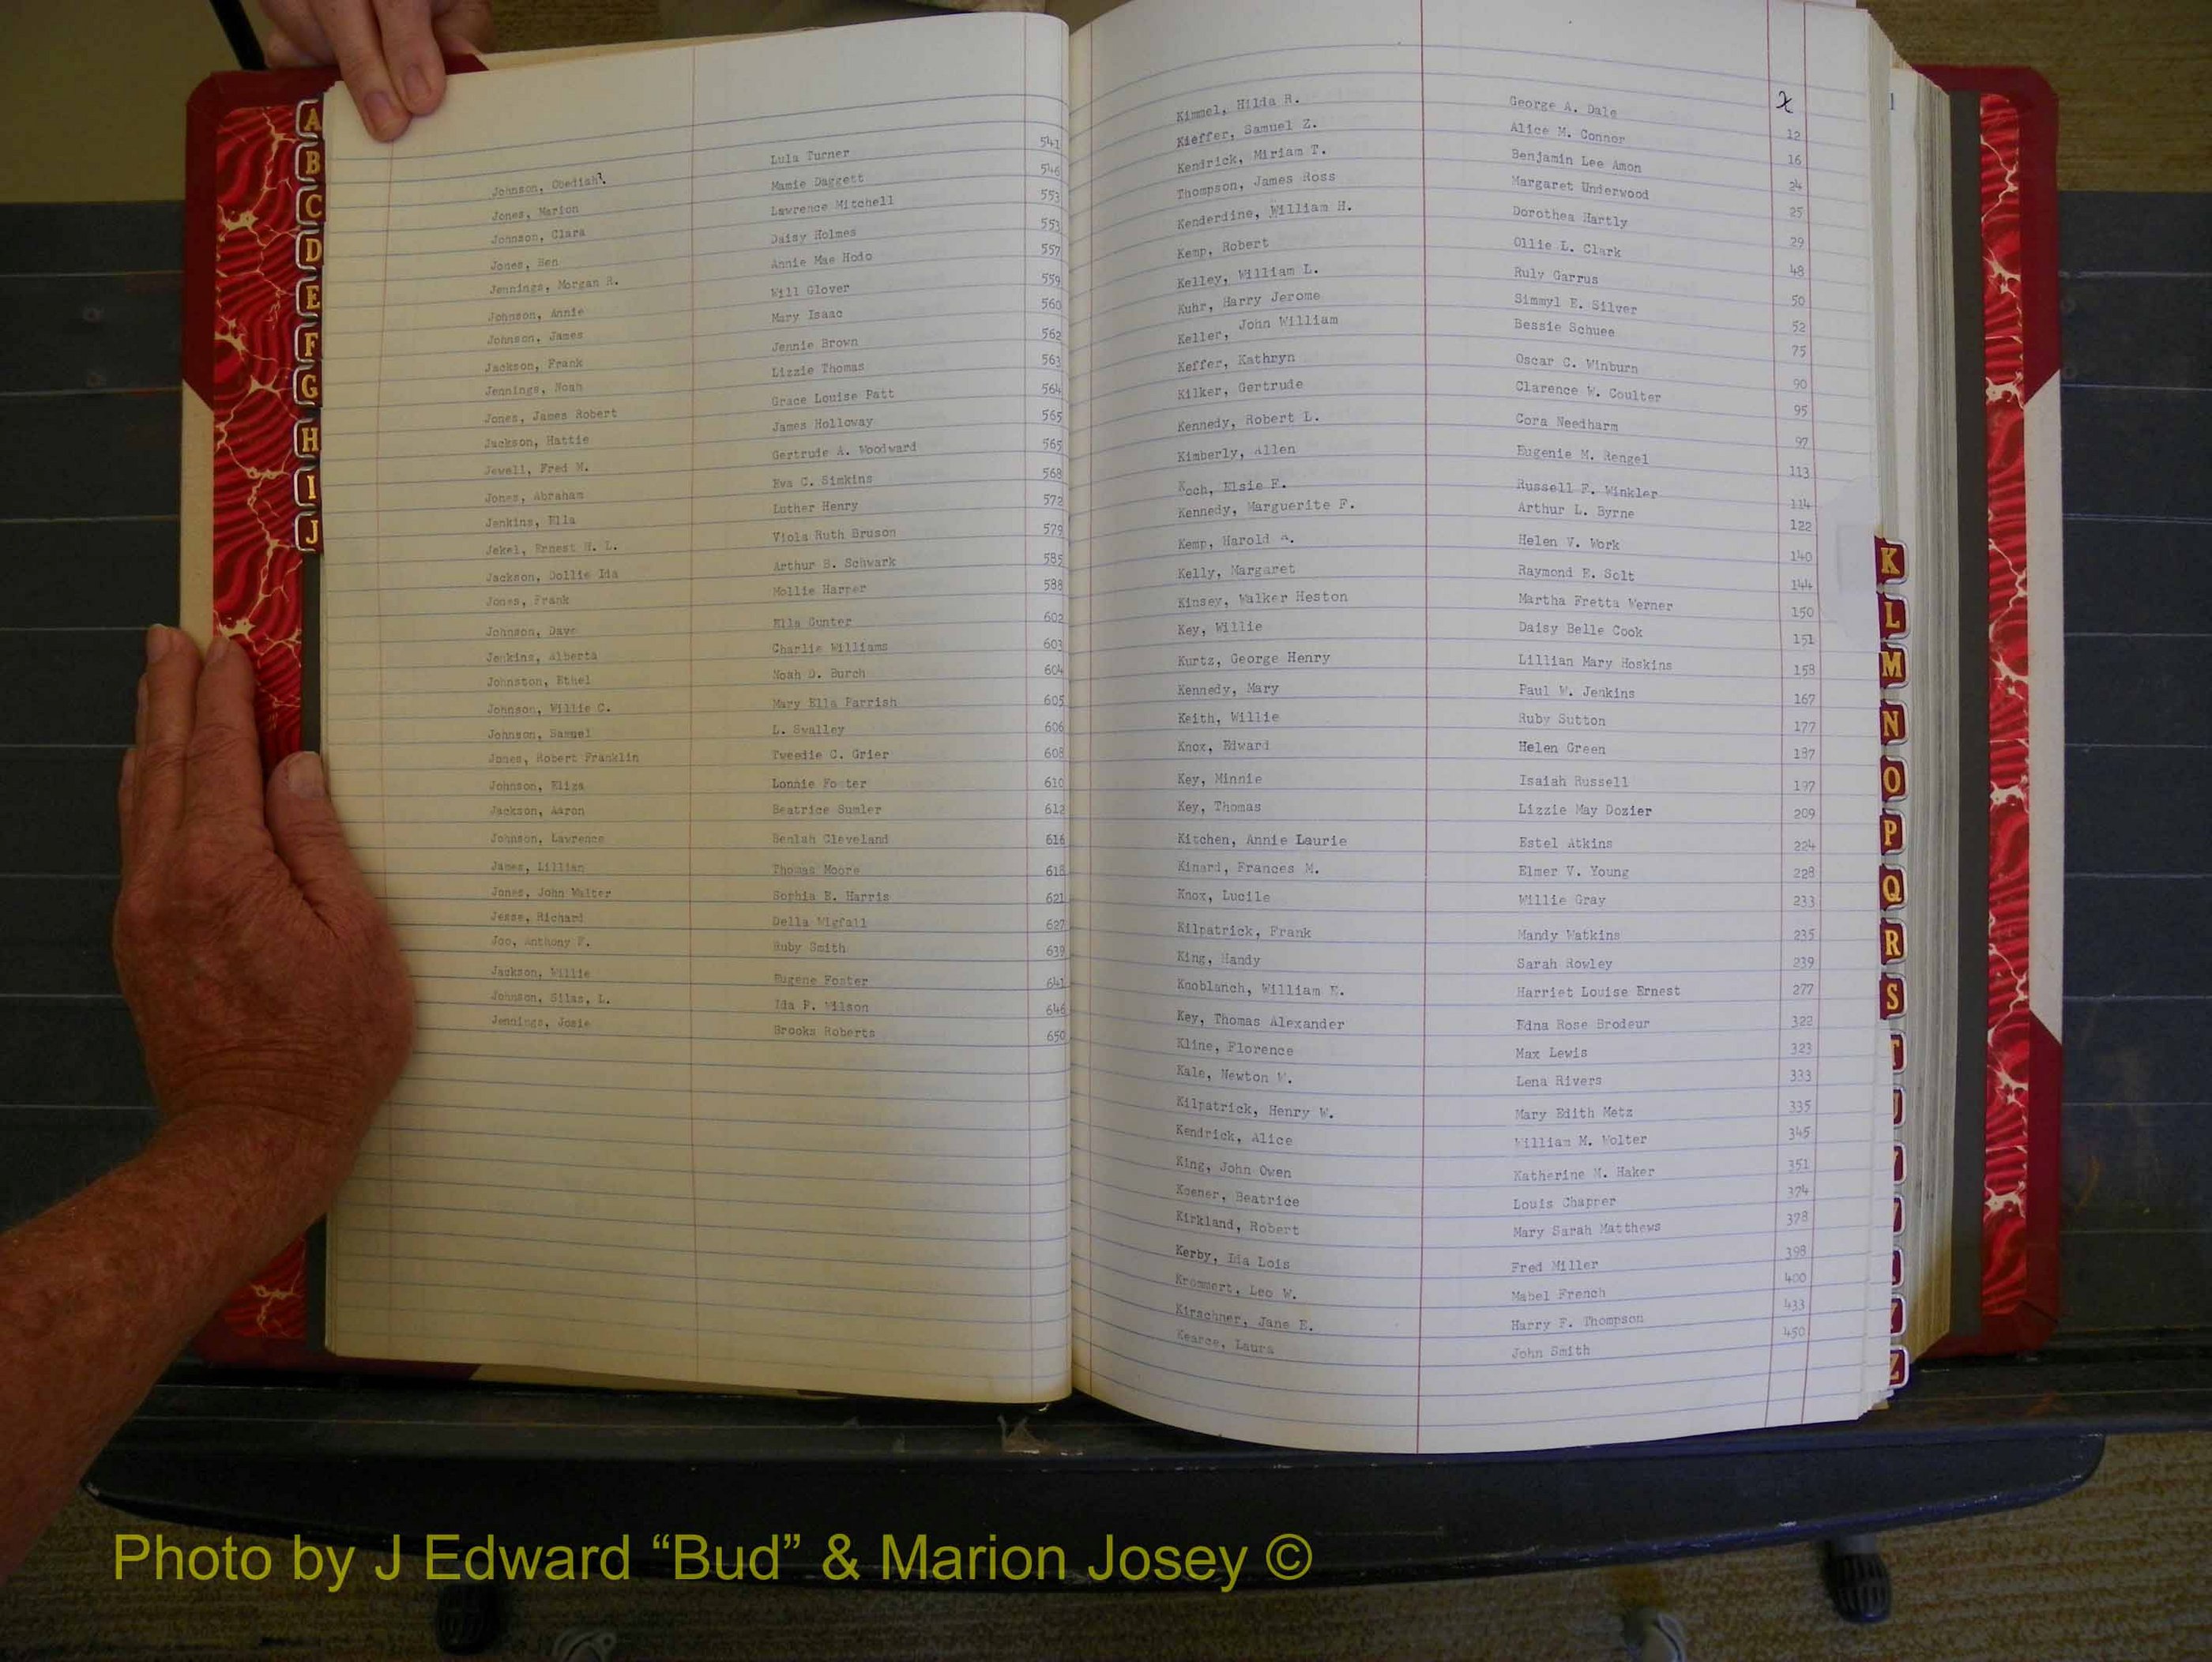 A
B
C
D
E
F
G
H
I
J
Johnson, Obediah Lula Turner 541
Jones, Marion Mamie Daggett 546
Johnson, Clara Lawrence Mitchell 553
Jones, Ben Daisy Holmes 553
Jennings, Morgan R. Annie Mae Hodo 557
Johnson, Annie Will Glover 559
Johnson, James Mary Isaac 560
Jackson, Frank Jennie Brown 562
Jennings, Noah Lizzie Thomas 563
Jones, James Robert Grace Louise Patt 564
Jackson, Hattie James Holloway 565
Jewell, Fred M. Gertrude A. Woodward 565
Jones, Abraham Eva C. Simkins 568
Jenkins, Ella Luther Henry 572
Jekel, Ernest H. L. Viola Ruth Bruson 579
Jackson, Dollie Ida Arthur B. Schwark 585
Jones, Frank Mollie Harper 588
Johnson, Dave Ella Gunter 602
Jenkins, Alberta Charlie Williams 603
Johnston, Ethel Noah D. Burch 604
Johnson, Willie C. Mary Ella Parrish 605
Johnson, Samuel L. Swalley 606
Jones, Robert Franklin Tweedie C. Grier 608
Johnson, Eliza Lonnie Fo ter 610
Jackson, Aaron Beatrice Sumler 612
Johnson, Lawrence Beulah Cleveland 616
James, Lillian Thomas Moore 618
Jones, John Walter Sophia E. Harris 621
Jesse, Richard Della Wigfall 627
Joo, Anthony F. Ruby Smith 639
Jackson, Willie Eugene Foster 641
Johnson, Silas, L. Ida P. Wilson 646
Jennings, Josie Brooks Roberts 650
Kimmel, Hilda R. George A. Dale 2
Kieffer, Samuel Z. Alice M. Connor 12
Kendrick, Miriam T. Benjamin Lee Amon 16
Thompson, James Ross Margaret Underwood 24
Kenderdine, William H. Dorothea Hartly 25
Kemp, Robert Ollie L. Clark 29
Kelley, William L. Ruly Garrus 48
Kuhr, Harry Jerome Simmyl E. Silver 50
Keller, John William Bessie Schuee 52
Keffer, Kathryn Oscar C. Winburn 75
Kilker, Gertrude Clarence W. Coulter 90
Kennedy, Robert L. Cora Needham 95
Kimberly, Allen Eugenie M. Rengel 97
Koch, Elsie F. Russell F. Winkler 113
Kennedy, Marguerite F. Arthur L. Byrne 114
Kemp, Harold A. Helen V. Work 122
Kelly, Margaret Raymond E. Solt 140
Kinsey, Walker Heston Martha Fretta Werner 144
Key, Willie Daisy Belle Cook 150
Kurtz, George Henry Lillian Mary Hoskins 151
Kennedy, Mary Paul W. Jenkins 158
Keith, Willie Ruby Sutton 167
Knox, Edward Helen Green 177
Key, Minnie Isaiah Russell 187
Key, Thomas Lizzie May Dozier 197
Kitchen, Annie Laurie Estel Atkins 209
Kinard, Frances M. Elmer V. Young 224
Knox, Lucile Willie Gray 228
Kilpatrick, Frank Mandy Watkins 233
King, Handy Sarah Rowley 235
Knoblanch, William E. Harriet Louise Ernest 239
Key, Thomas Alexander Edna Rose Brodeur 277
Kline, Florence Max Lewis 322
Kale, Newton W. Lena Rivers 323
Kilpatrick, Henry W. Mary Edith Metz 333
Kendrick, Alice William M. Wolter 335
King, John Owen Katherine M. Haker 345
Koener, Beatrice Louis Chapper 351
Kirkland, Robert Mary Sarah Matthews 374
Kerby, Ida Lois Fred Miller 378
Krommert, Leo W. Mabel French 398
Kirschner, Jane E. Harry F. Thompson 400
Kearce, Laura John Smith 433
450
K
L
M
N
O
P
Q
R
S
T
U
Z
Photo by J Edward “Bud” & Marion Josey ©